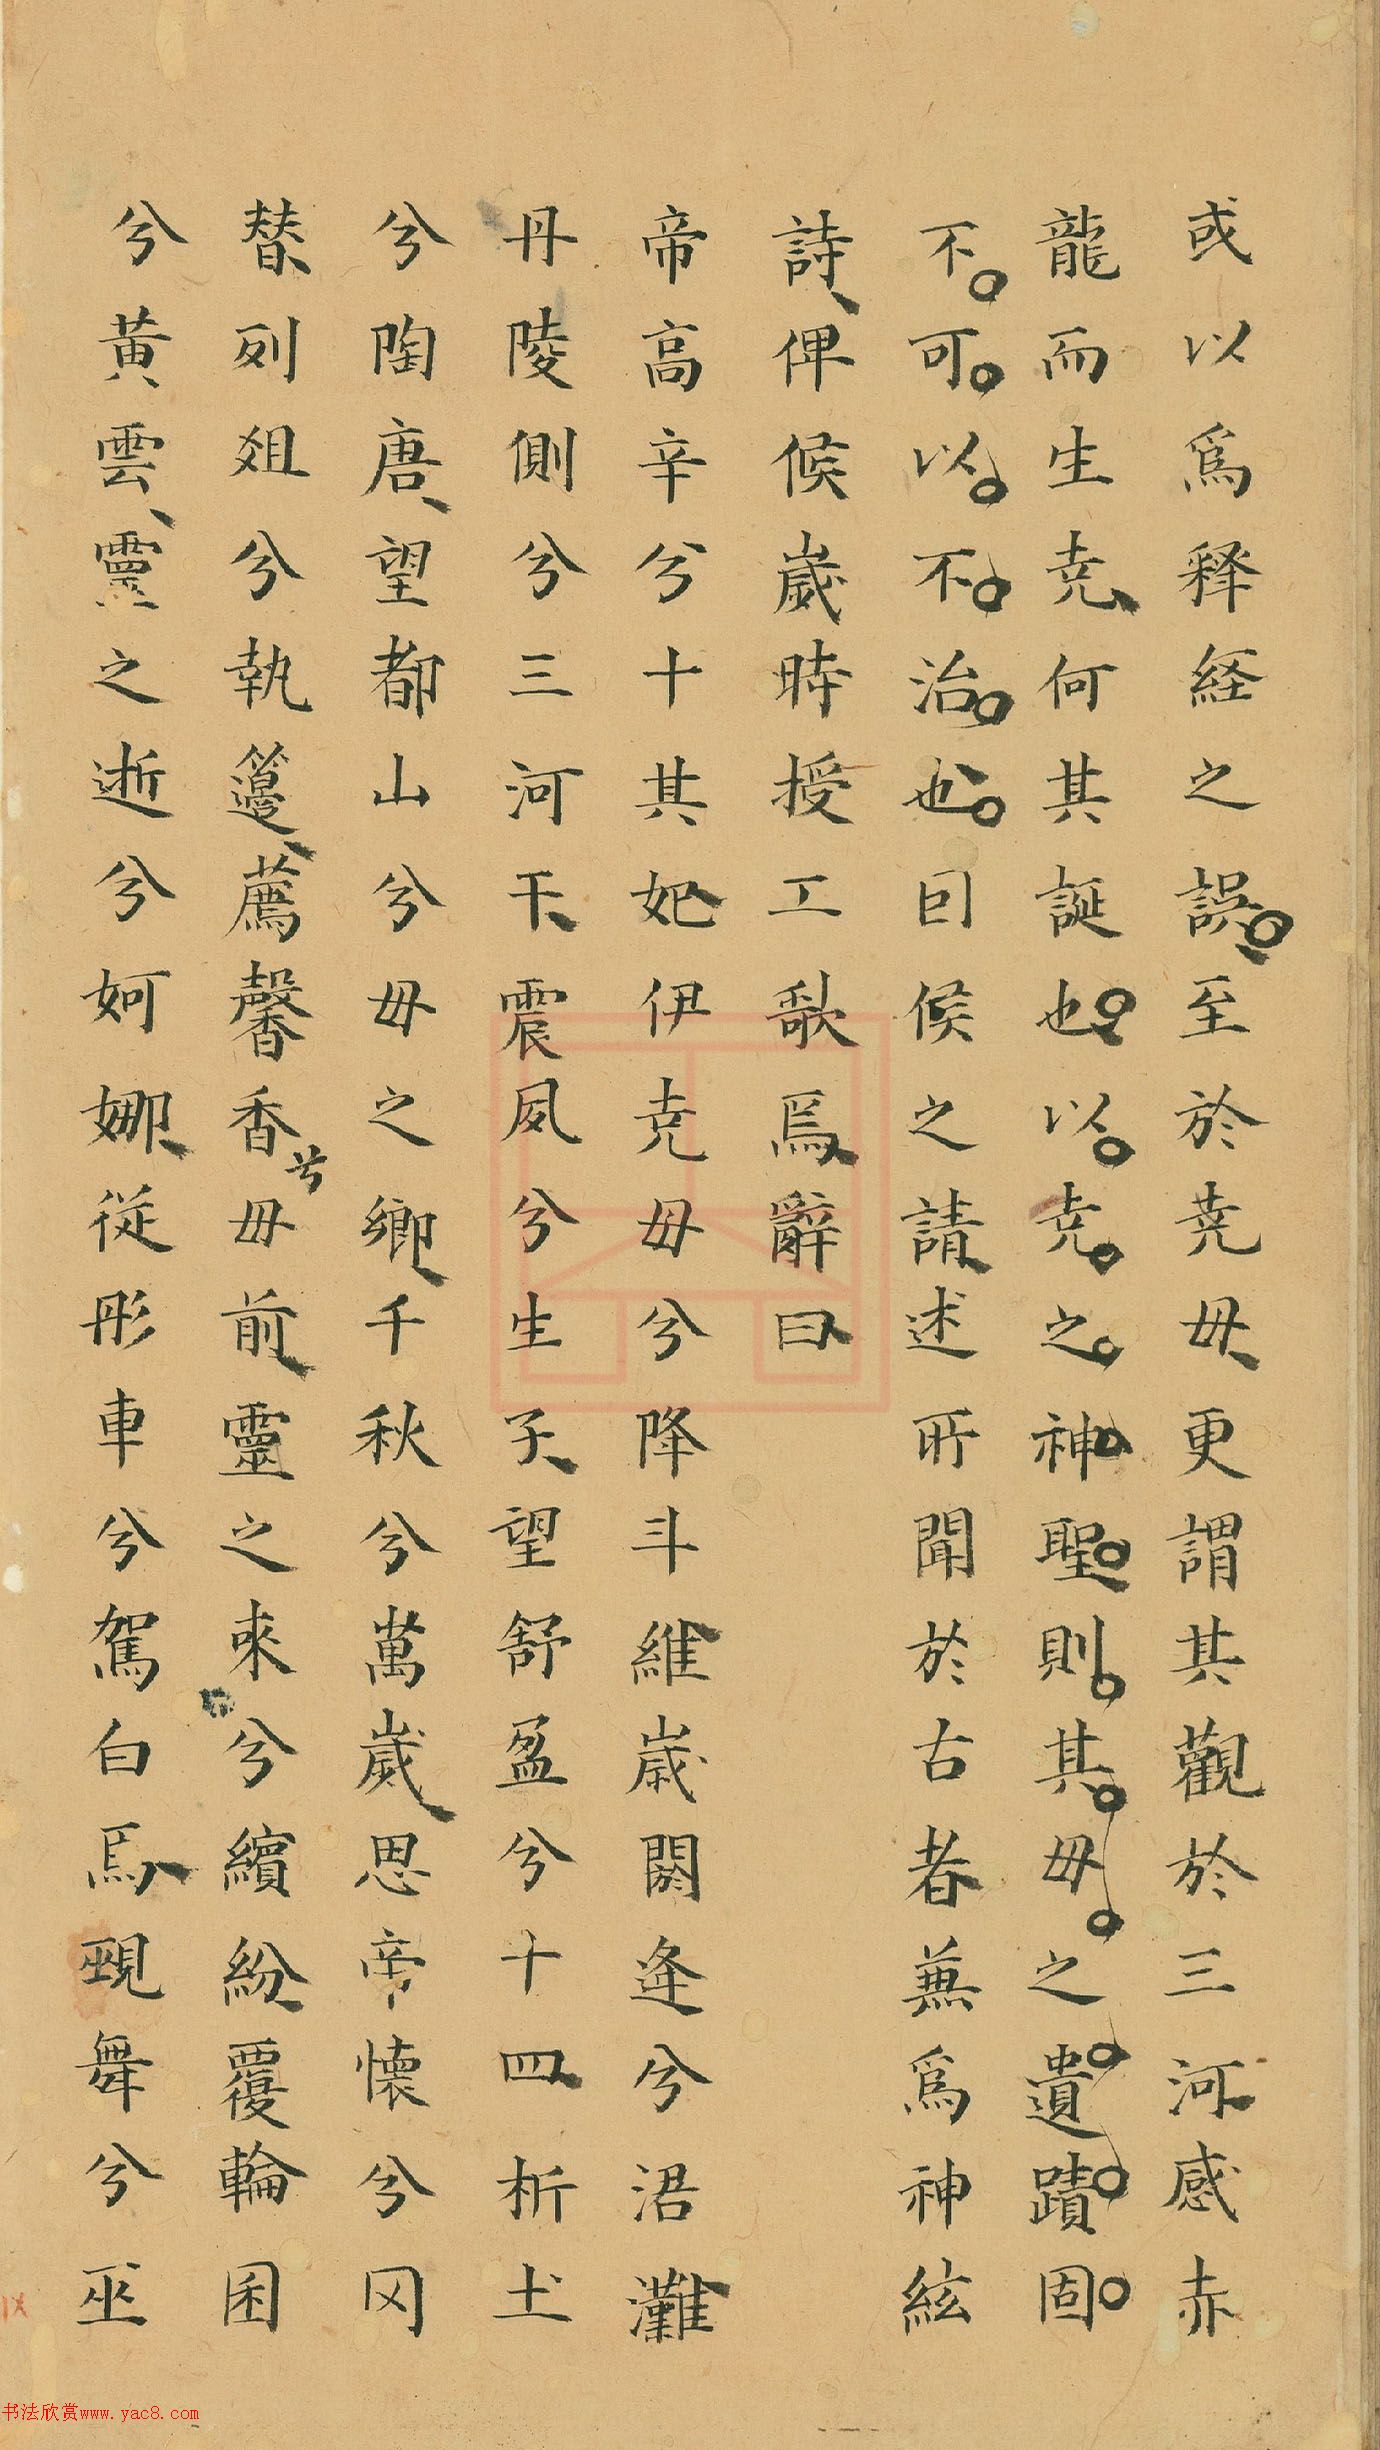 或以爲釋経之誤至於尭毋更謂其觀於三河感赤
龍而生尭何其誕也以尭之神聖則其毋之遺蹟固
不可以不治也囙候之請述所聞於古者蕪爲神絃
詩俾候歲時授工歌焉辭曰
帝高辛兮十其妃伊尭毋兮降斗維歳閼逢兮涒灘
丹陵側兮三河干震夙兮生子望舒盈兮十四析土
兮陶唐望都山兮毋之鄉千秋兮萬歲思帝懷兮冈
替列俎兮執籩薦馨香兮毋前靈之來兮繽紛覆輪囷
兮黃雲靈之逝兮妸娜從彤車兮駕白馬覡舞兮巫
书法欣赏www.yac8.com